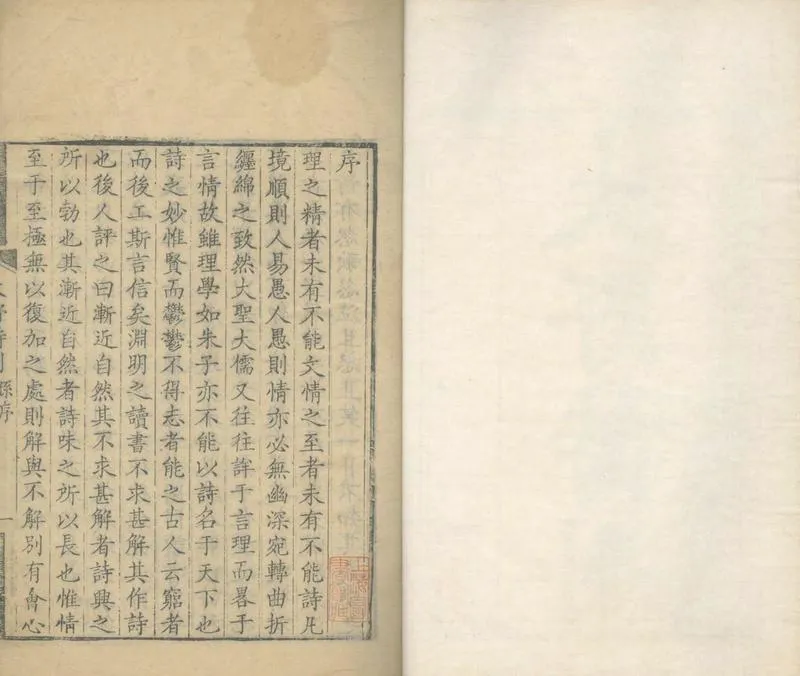 序
理之精者未有不能文情之至者未有不能詩凡
境順則人易愚人愚則情亦必無幽深宛轉曲折
纏綿之致然大聖大儒又往往詳于言理而畧于
言情故雖理學如朱子亦不能以詩名于天下也
詩之妙惟賢而鬱鬱不得志者能之古人云窮者
而後工斯言信矣淵明之讀書不求甚解其作詩
也後人評之曰漸近自然其不求甚解者詩興之
所以勃也其漸近自然者詩味之所以長也惟情
至于至極無以復加之處則解與不解別有會心